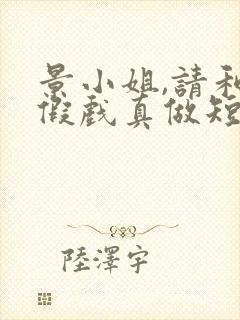 景小姐,請和
假戲真做短
陸澤宇